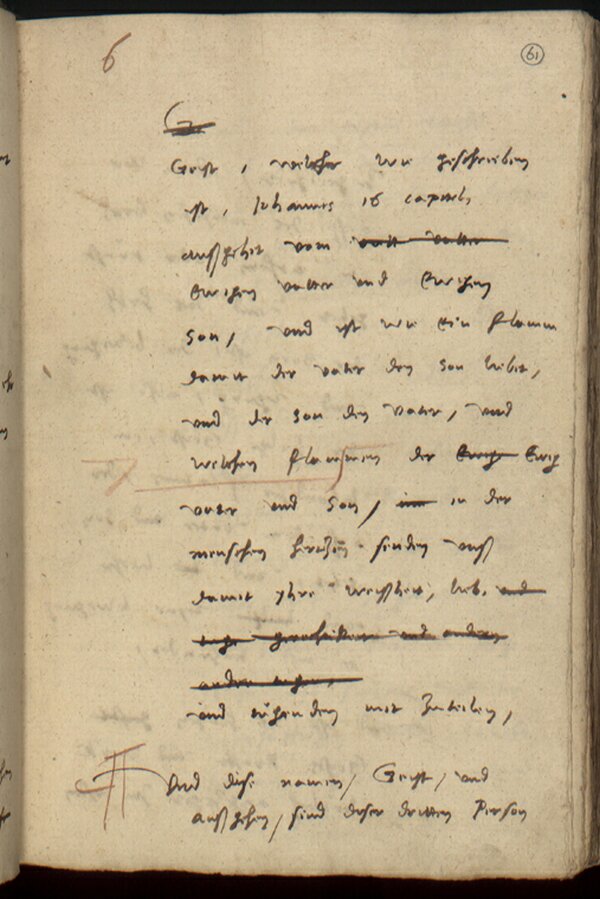 6
61
Geist, welcher wie geschrieben
ist, Johannis 16 capitel,
außgehet vom
Ewigen vatter und Ewigen
Son, und ist wie ein flamm
damit der vater den Son liebet,
und der Son den vater, und
welchen flammen der Ewig
vater und Son, in der
menschen hertzen senden, unß
damit yhre weißheit, lieb,
und tugenden mit zuteilen,
Und dise namen, Geist, und
außgehen, sind diser dritten Person